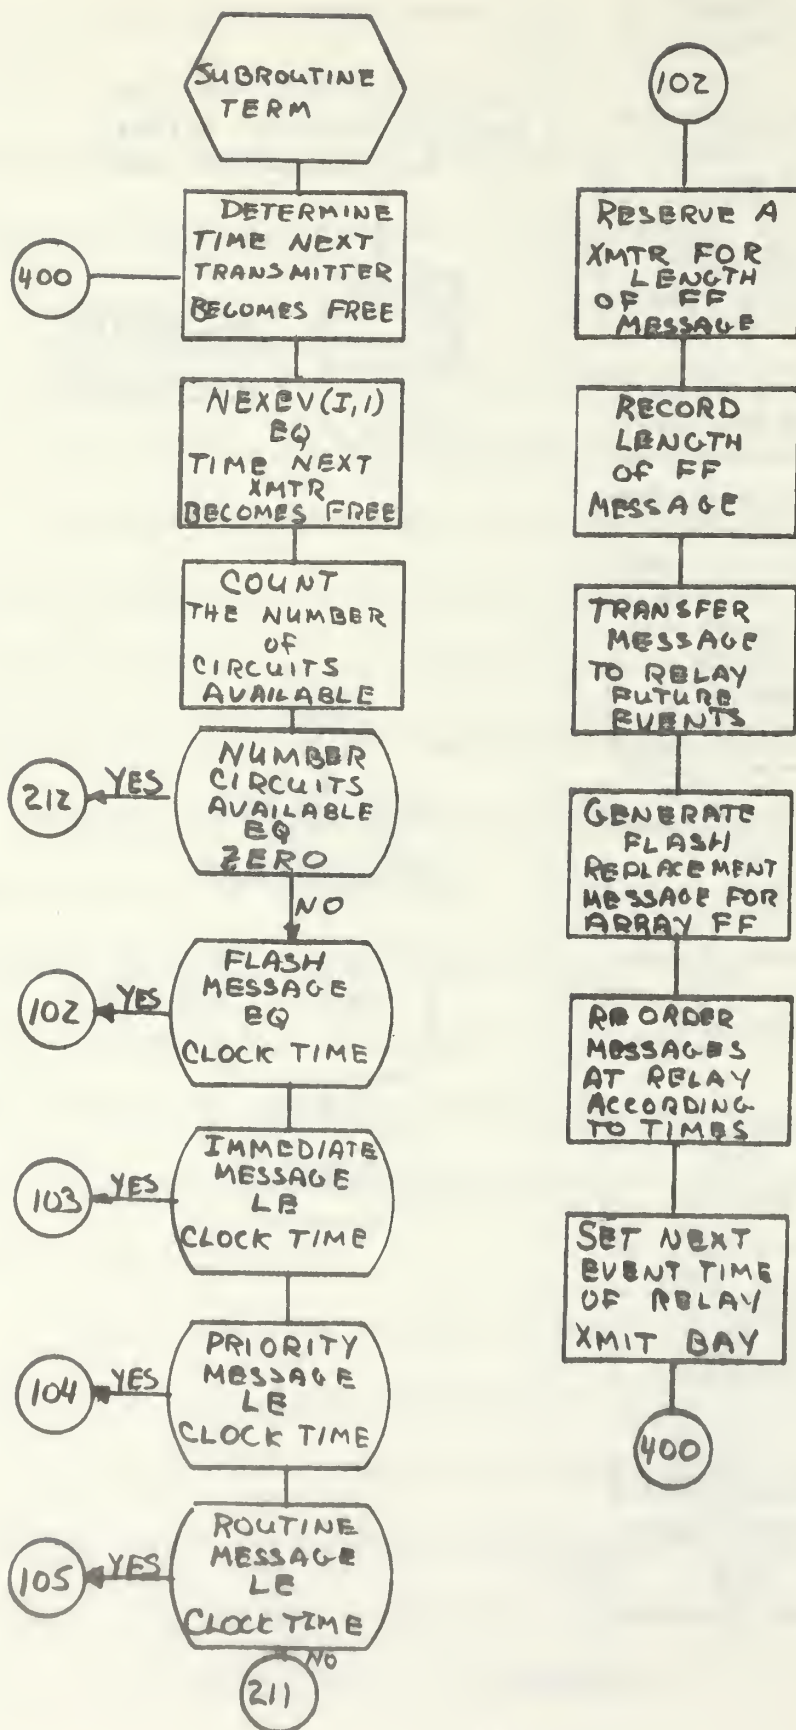 SUBROUTINE
TERM
DETERMINE
TIME NEXT
TRANSMITTER
BECOMES FREE
400
NEXEV(I,1)
EQ
TIME NEXT
XMTR
BECOMES FREE
COUNT
THE NUMBER
OF
CIRCUITS
AVAILABLE
NUMBER
CIRCUITS
AVAILABLE
EQ
ZERO
YES
212
NO
FLASH
MESSAGE
EQ
CLOCK TIME
YES
102
IMMEDIATE
MESSAGE
LE
CLOCK TIME
YES
103
PRIORITY
MESSAGE
LE
CLOCK TIME
YES
104
ROUTINE
MESSAGE
LE
CLOCK TIME
YES
105
NO
211
102
RESERVE A
XMTR FOR
LENGTH
OF FF
MESSAGE
RECORD
LENGTH
OF FF
MESSAGE
TRANSFER
MESSAGE
TO RELAY
FUTURE
EVENTS
GENERATE
FLASH
REPLACEMENT
MESSAGE FOR
ARRAY FF
REORDER
MESSAGES
AT RELAY
ACCORDING
TO TIMES
SET NEXT
EVENT TIME
OF RELAY
XMIT BAY
400